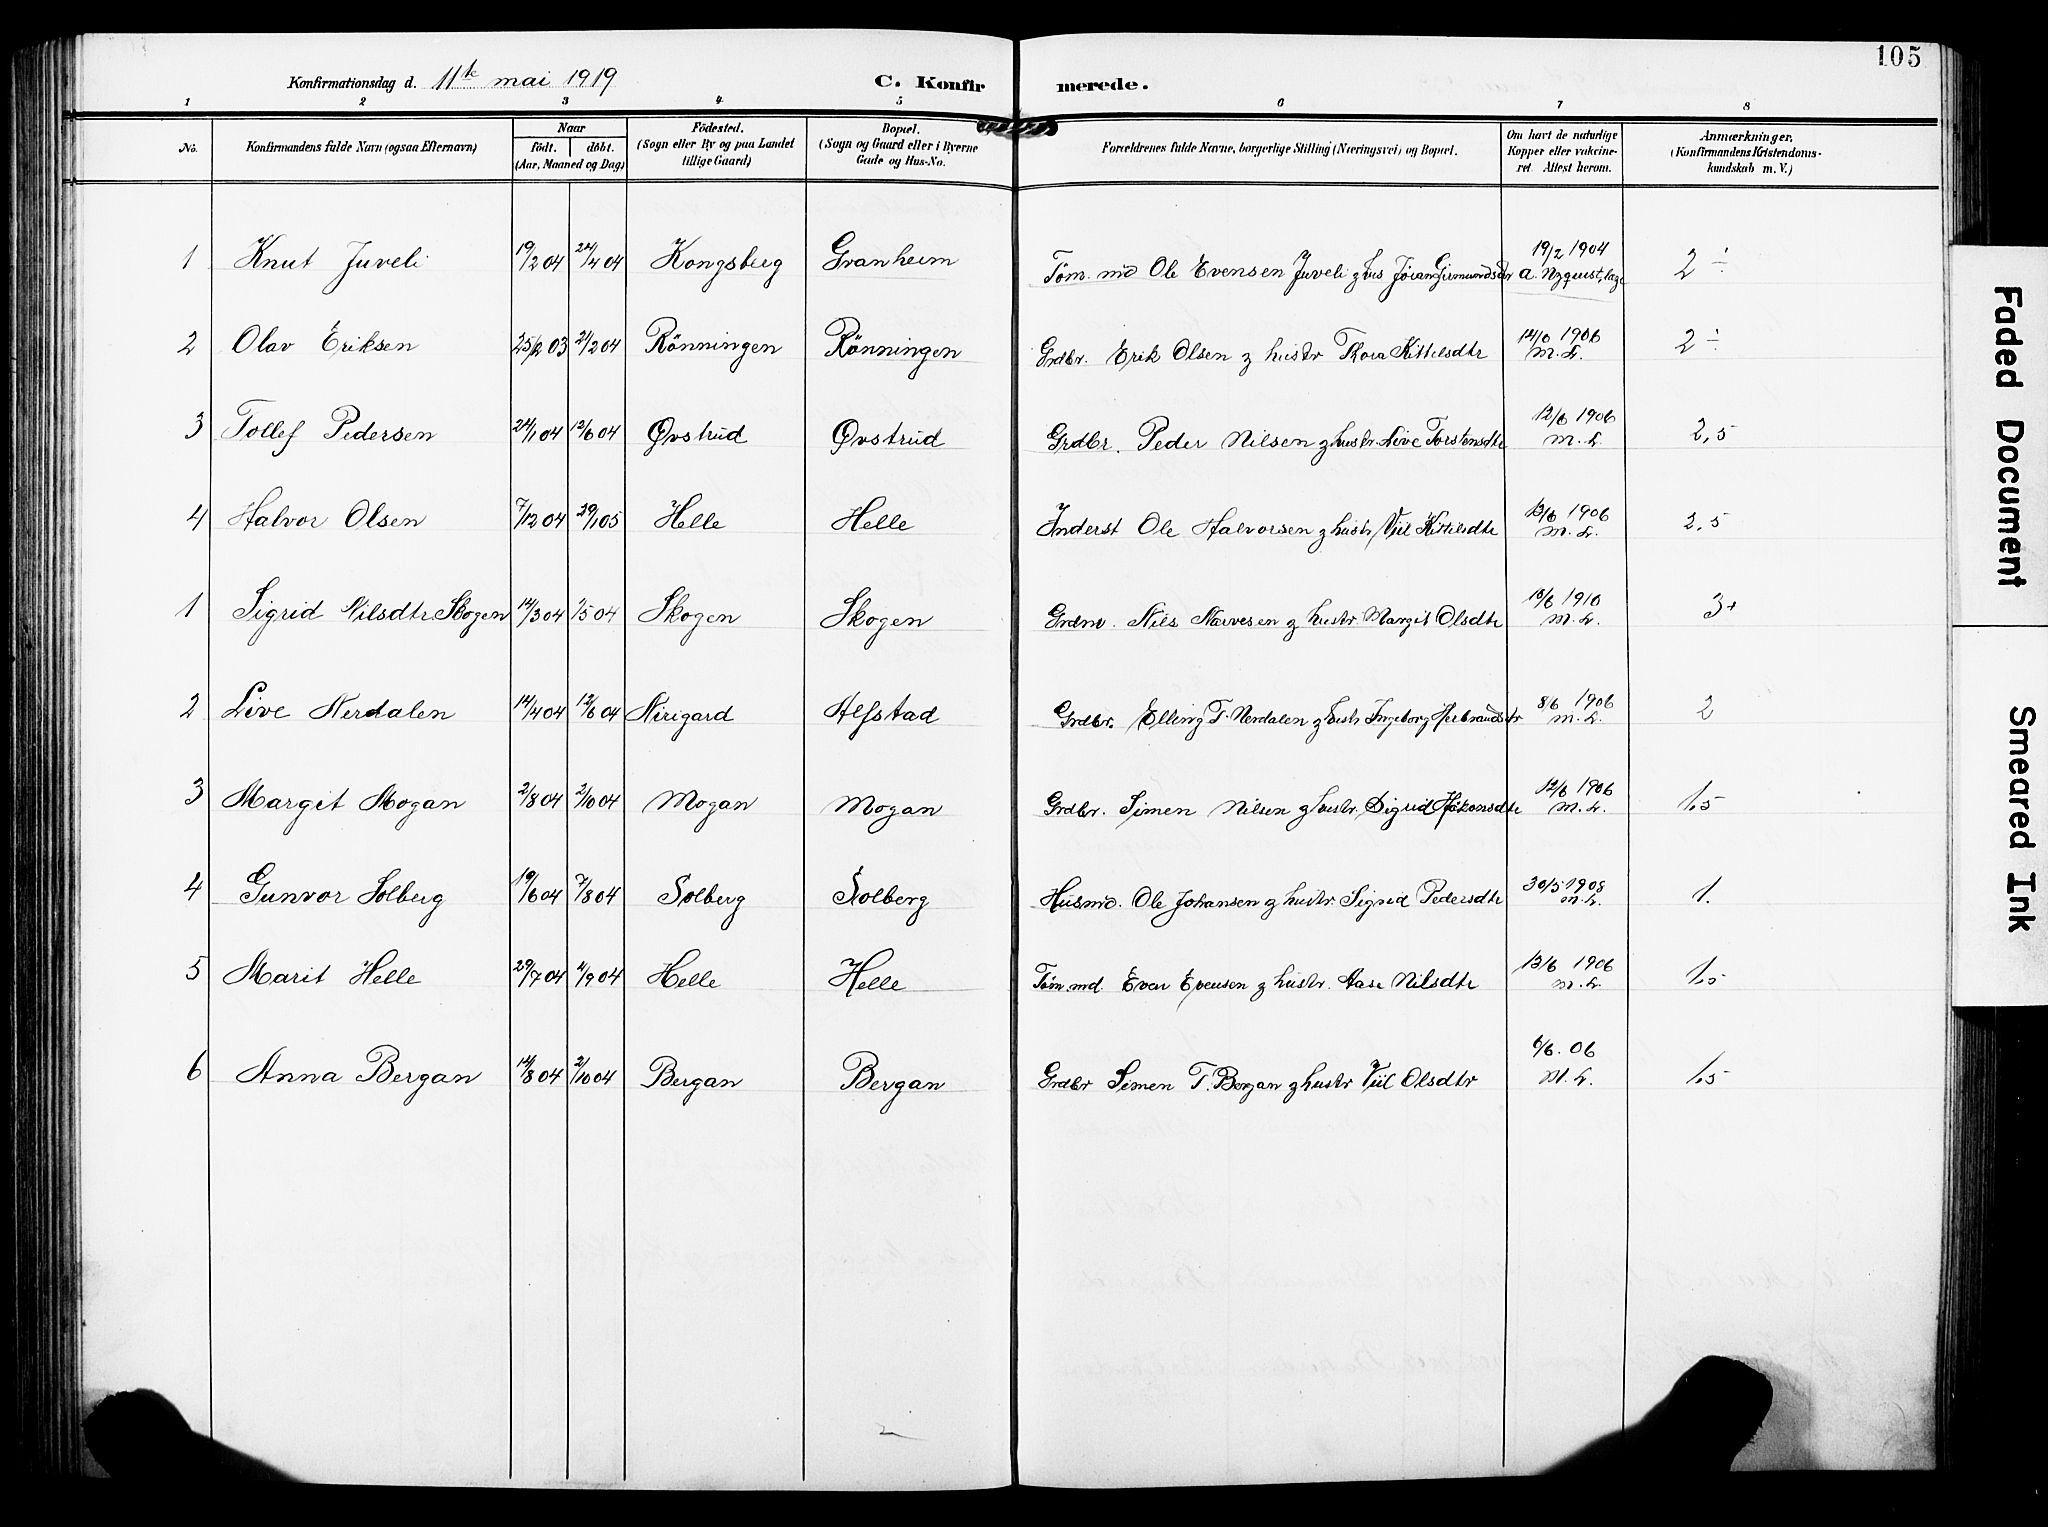 105
Konfirmationsdag d. 11te mai 1919 C. Konfirmerede.
1 2 3 4 5 6 7 8
No. Konfirmandens fulde Navn (ogsaa Efternavn) Naar født. døbt. (Aar, Maaned og Dag) Födested. (Sogn eller By og paa Landet tillige Gaard) Bopæl. (Sogn og Gaard eller i Byerne Gade og Hus-No. Forældrenes fulde Navne, borgerlige Stilling (Næringsvei) og Bopæl. Om havt de naturlige Kopper eller vakcineret. Attest herom. Anmærkninger, (Konfirmandens Kristendomskundskab m. V.)
1 Knut Juveli 19/2 04 24/4 04 Kongsberg Granheim Tøm. md Ole Evensen Juveli & hus Jöran Girmundsdtr 19/2 1904 a. Nyquist, læge 2 ÷
2 Olav Eriksen 25/2 03 21/2 04 Rönningen Rönningen Grdbr. Erik Olsen & hustr Thora Kittilsdtr 1906 M. L. 2 ÷
3 Tollef Pedersen 24/1 04 12/6 04 Øvstrud Øvstrud Grdbr. Peder Nilsen & hustr. Live Torstensdtr 12/6 1906 M. L. 2,5
4 Halvor Olsen 7/12 04 29/1 05 Helle Helle Inderst Ole Halvorsen & hustr. Viil Kittilsdtr 13/6 1906 M. L. 2,5
1 Sigrid Nilsdtr Skogen 14/3 04 1/5 04 Skogen Skogen Grdm. Nils Narvesen & hustr. Margit Olsdtr 1910 M. L. 3+
2 Live Nerdalen 14/4 04 12/6 04 Nirigard Alfstad Grdbr. Elling T. Nerdalen & hustr Ingeborg Herbrandsdtr 8/6 1906 M. L. 2
3 Margit Mogan 2/8 04 2/10 04 Mogan Mogan Grdbr. Simen Nilsen & hustr. Sigrid Håkonsdtr 12/6 1906 M. L. 1,5
4 Gunvor Solberg 19/6 04 7/8 04 Solberg Solberg Husmd. Ole Johansen & hustr. Sigrid Pedersdtr 30/5 1908 M. L. 1.
5 Marit Helle 29/7 04 4/9 04 Helle Helle Tøm. md. Even Evensen & hustr. Aase Nilsdtr 13/6 1906 M. L. 1,5
6 Anna Bergan 14/8 04 2/10 04 Bergan Bergan Grdbr Simen T. Bergan & hustr Viil Olsdtr 6/6. 06 M. L. 1,5
Faded Document
Smeared Ink